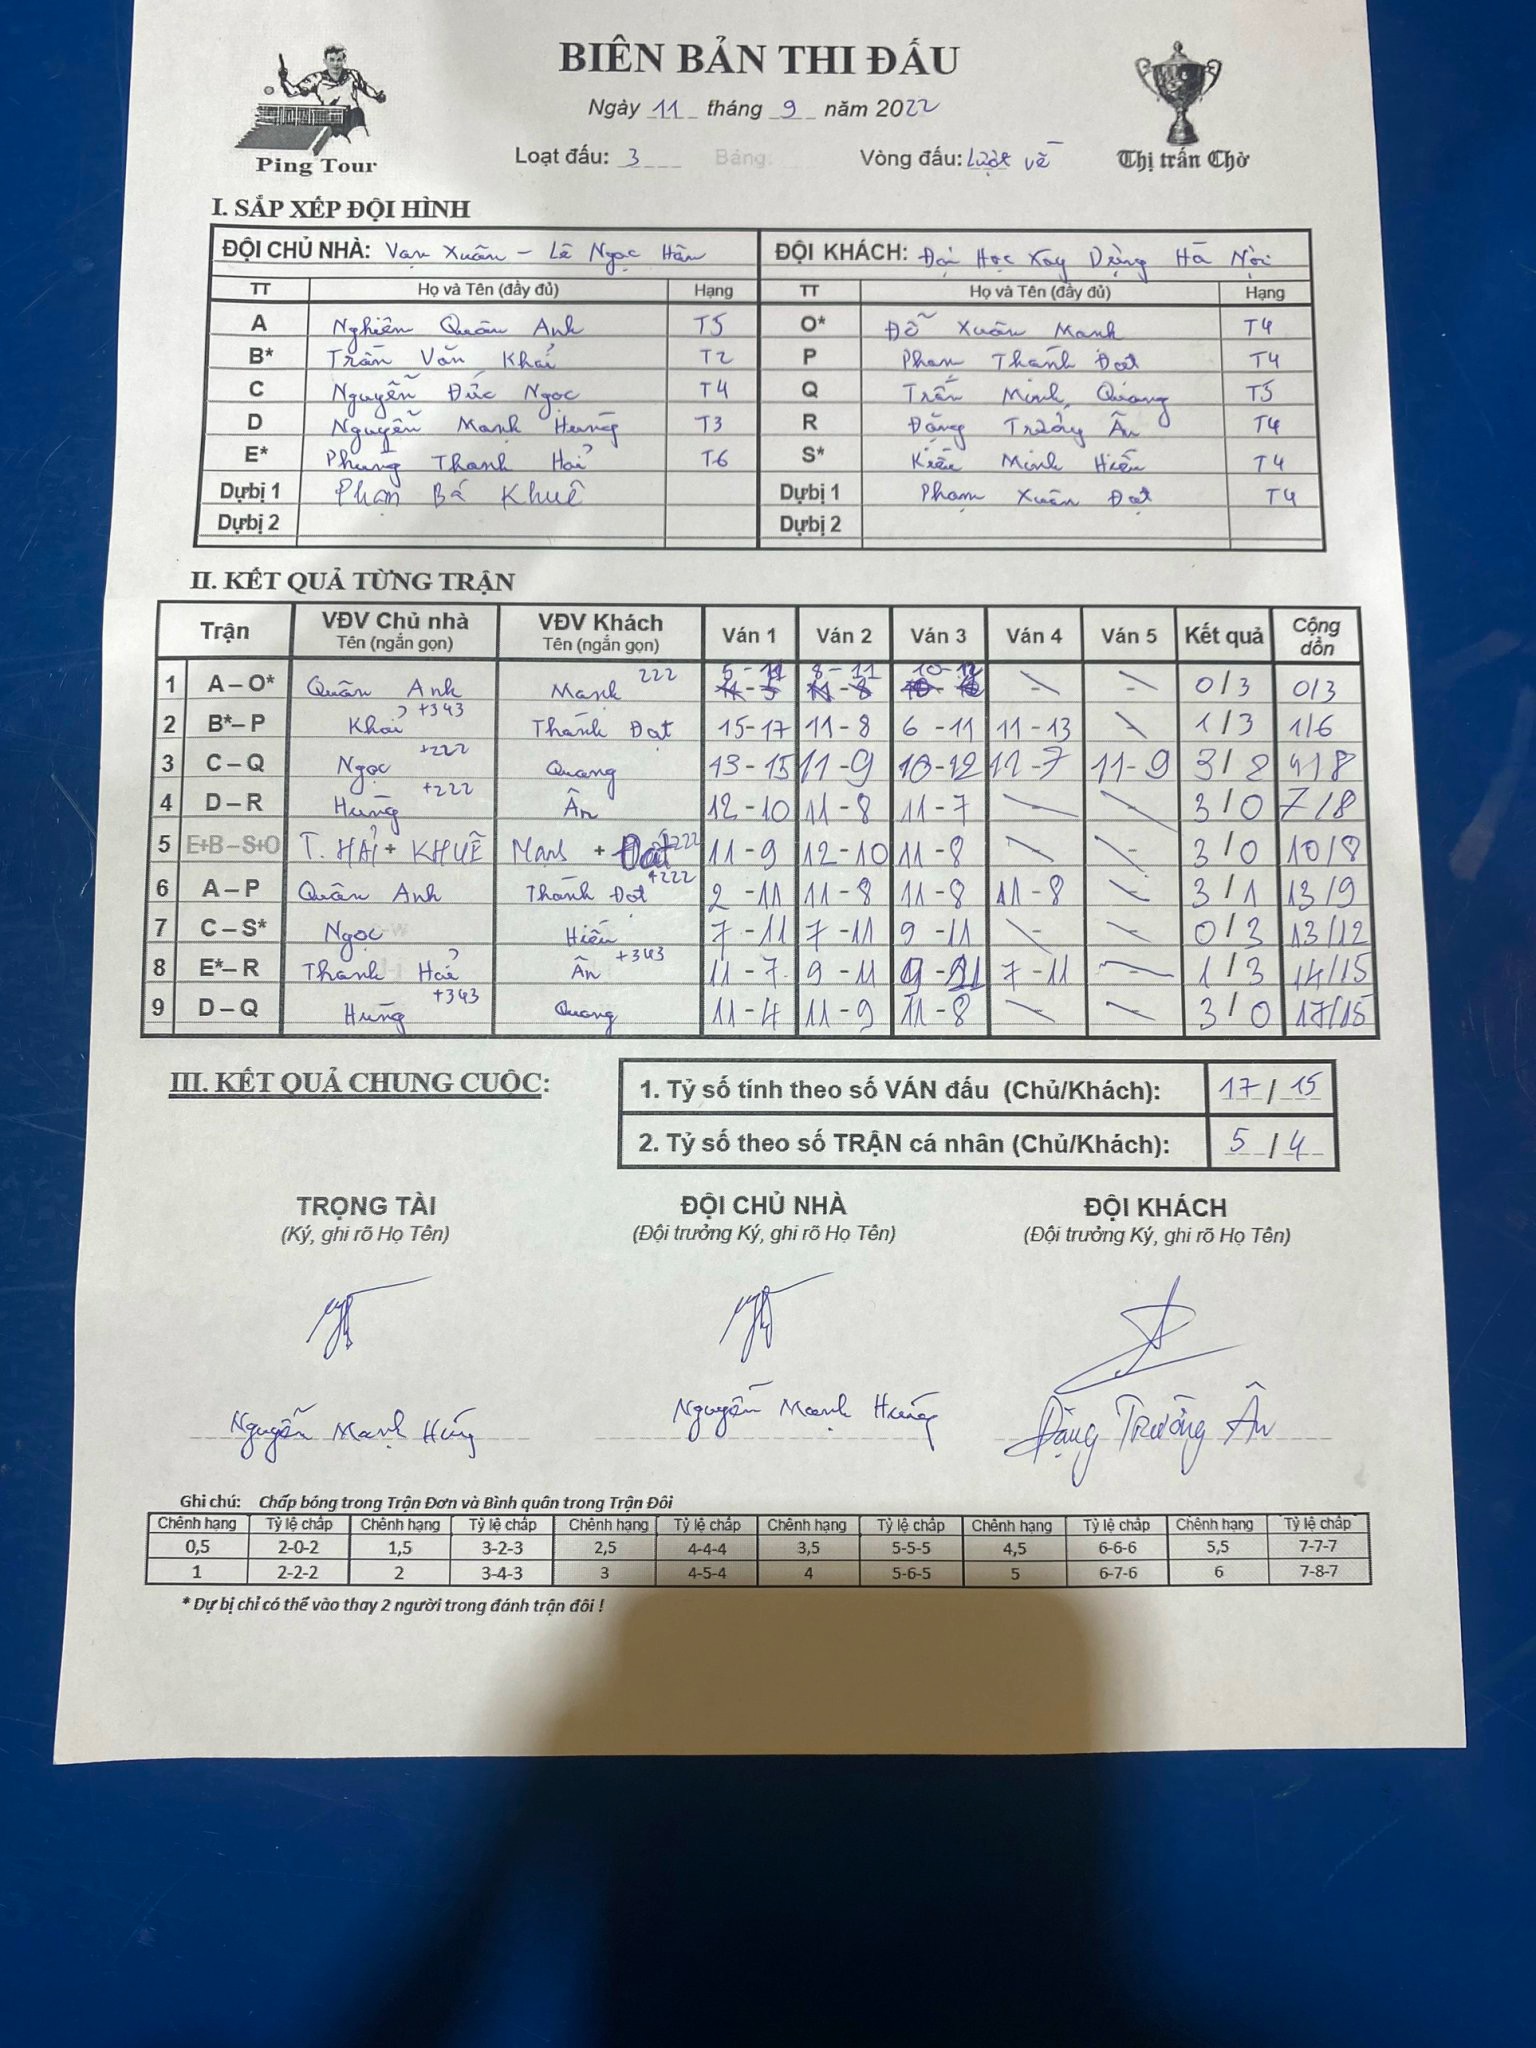 BIÊN BẢN THI ĐẤU
Ngày 11 tháng 9 năm 2022
Ping Tour
Loạt đấu: 3 Bảng: Vòng đấu: Lượt về
Thị trấn Chờ
I. SẮP XẾP ĐỘI HÌNH
ĐỘI CHỦ NHÀ: Vạn Xuân - Lê Ngọc Hân ĐỘI KHÁCH: Đại Học Xây Dựng Hà Nội
TT Họ và Tên (đầy đủ) Hạng TT Họ và Tên (đầy đủ) Hạng
A Nghiên Quân Anh T5 O* Đỗ Xuân Mạnh T4
B* Trần Văn Khải T2 P Phan Thành Đạt T4
C Nguyễn Đức Ngọc T4 Q Trần Minh Quang T5
D Nguyễn Mạnh Hùng T3 R Đặng Trường Ân T4
E* Phùng Thanh Hải T6 S* Kiều Minh Hiếu T4
Dựbị 1 Phạn Bá Khuê Dựbị 1 Phạm Xuân Đạt T4
Dựbị 2 Dựbị 2
II. KẾT QUẢ TỪNG TRẬN
Trận VĐV Chủ nhà Tên (ngắn gọn) VĐV Khách Tên (ngắn gọn) Ván 1 Ván 2 Ván 3 Ván 4 Ván 5 Kết quả Cộng dồn
1 A – O* Quân Anh Mạnh 222 5-11 8-11 10-12 - - 0/3 0/3
2 B*– P Khải +343 Thành Đạt 15-17 11-8 6-11 11-13 - 1/3 1/6
3 C – Q Ngọc +222 Quang 13-15 11-9 10-12 11-7 11-9 3/2 4/8
4 D – R Hùng +222 Ân 12-10 11-8 11-7 - - 3/0 7/8
5 E+B – S+O T. HẢI + KHUÊ Mạnh + Đạt +222 11-9 12-10 11-8 - - 3/0 10/8
6 A – P Quân Anh Thành Đạt +222 2-11 11-8 11-8 11-8 - 3/1 13/9
7 C – S* Ngọc Hiếu 7-11 7-11 9-11 - - 0/3 13/12
8 E*– R Thanh Hải Ân +343 11-7 9-11 9-11 7-11 - 1/3 14/15
9 D – Q Hùng +343 Quang 11-4 11-9 11-8 - - 3/0 17/15
III. KẾT QUẢ CHUNG CUỘC:
1. Tỷ số tính theo số VÁN đấu (Chủ/Khách): 17 / 15
2. Tỷ số theo số TRẬN cá nhân (Chủ/Khách): 5 / 4
TRỌNG TÀI ĐỘI CHỦ NHÀ ĐỘI KHÁCH
(Ký, ghi rõ Họ Tên) (Đội trưởng Ký, ghi rõ Họ Tên) (Đội trưởng Ký, ghi rõ Họ Tên)
Nguyễn Mạnh Hùng Nguyễn Mạnh Hùng Đặng Trường Ân
Ghi chú: Chấp bóng trong Trận Đơn và Bình quân trong Trận Đôi
Chênh hạng Tỷ lệ chấp Chênh hạng Tỷ lệ chấp Chênh hạng Tỷ lệ chấp Chênh hạng Tỷ lệ chấp Chênh hạng Tỷ lệ chấp Chênh hạng Tỷ lệ chấp
0,5 2-0-2 1,5 3-2-3 2,5 4-4-4 3,5 5-5-5 4,5 6-6-6 5,5 7-7-7
1 2-2-2 2 3-4-3 3 4-5-4 4 5-6-5 5 6-7-6 6 7-8-7
* Dự bị chỉ có thể vào thay 2 người trong đánh trận đôi !